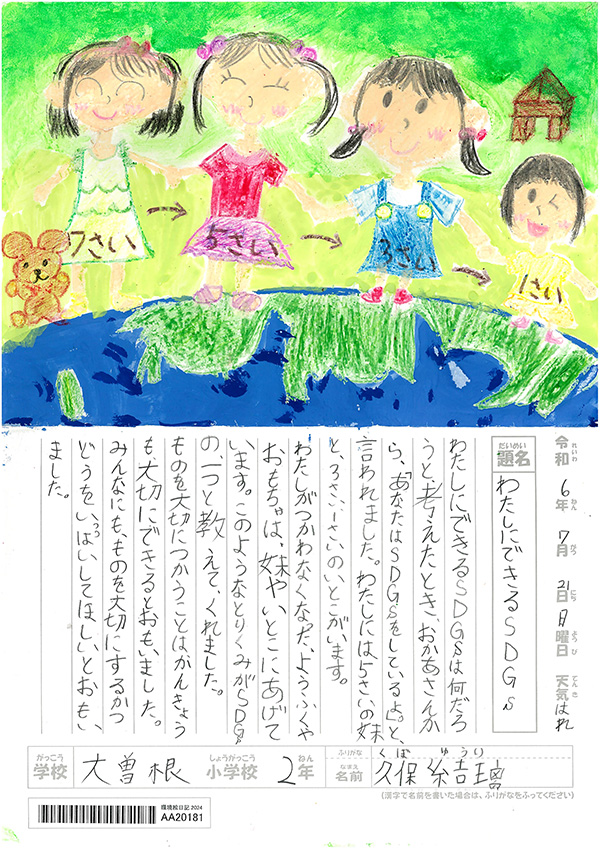 7さい
5さい
3さい
1さい
令和 6年 7月 21日 日曜日 天気 はれ
れいわ ねん がつ にち ようび てんき
だいめい
題名 わたしにできるSDGs
わたしにできるSDGsは何だろ
うと考えたとき、おかあさんか
ら、「あなたはSDGsをしているよ。」と、
言われました。わたしには5さいの妹
と、3さい、1さいのいとこがいます。
わたしがつかわなくなった、ようふくや
おもちゃは、妹やいとこにあげて
います。このようなとりくみがSDGs
の、一つと教えて、くれました。
ものを大切につかうことはがんきょう
も、大切にできるとおもいました。
みんなにも、ものを大切にするかつ
どうを、いっぱいしてほしいとおもい
ました。
がっこう しょうがっこう ねん
学校 大曽根 小学校 2年
ふりがな くぼ ゆうり
なまえ
名前 久保 結璃
(漢字で名前を書いた場合は、ふりがなをふってください)
環境絵日記 2024
AA20181